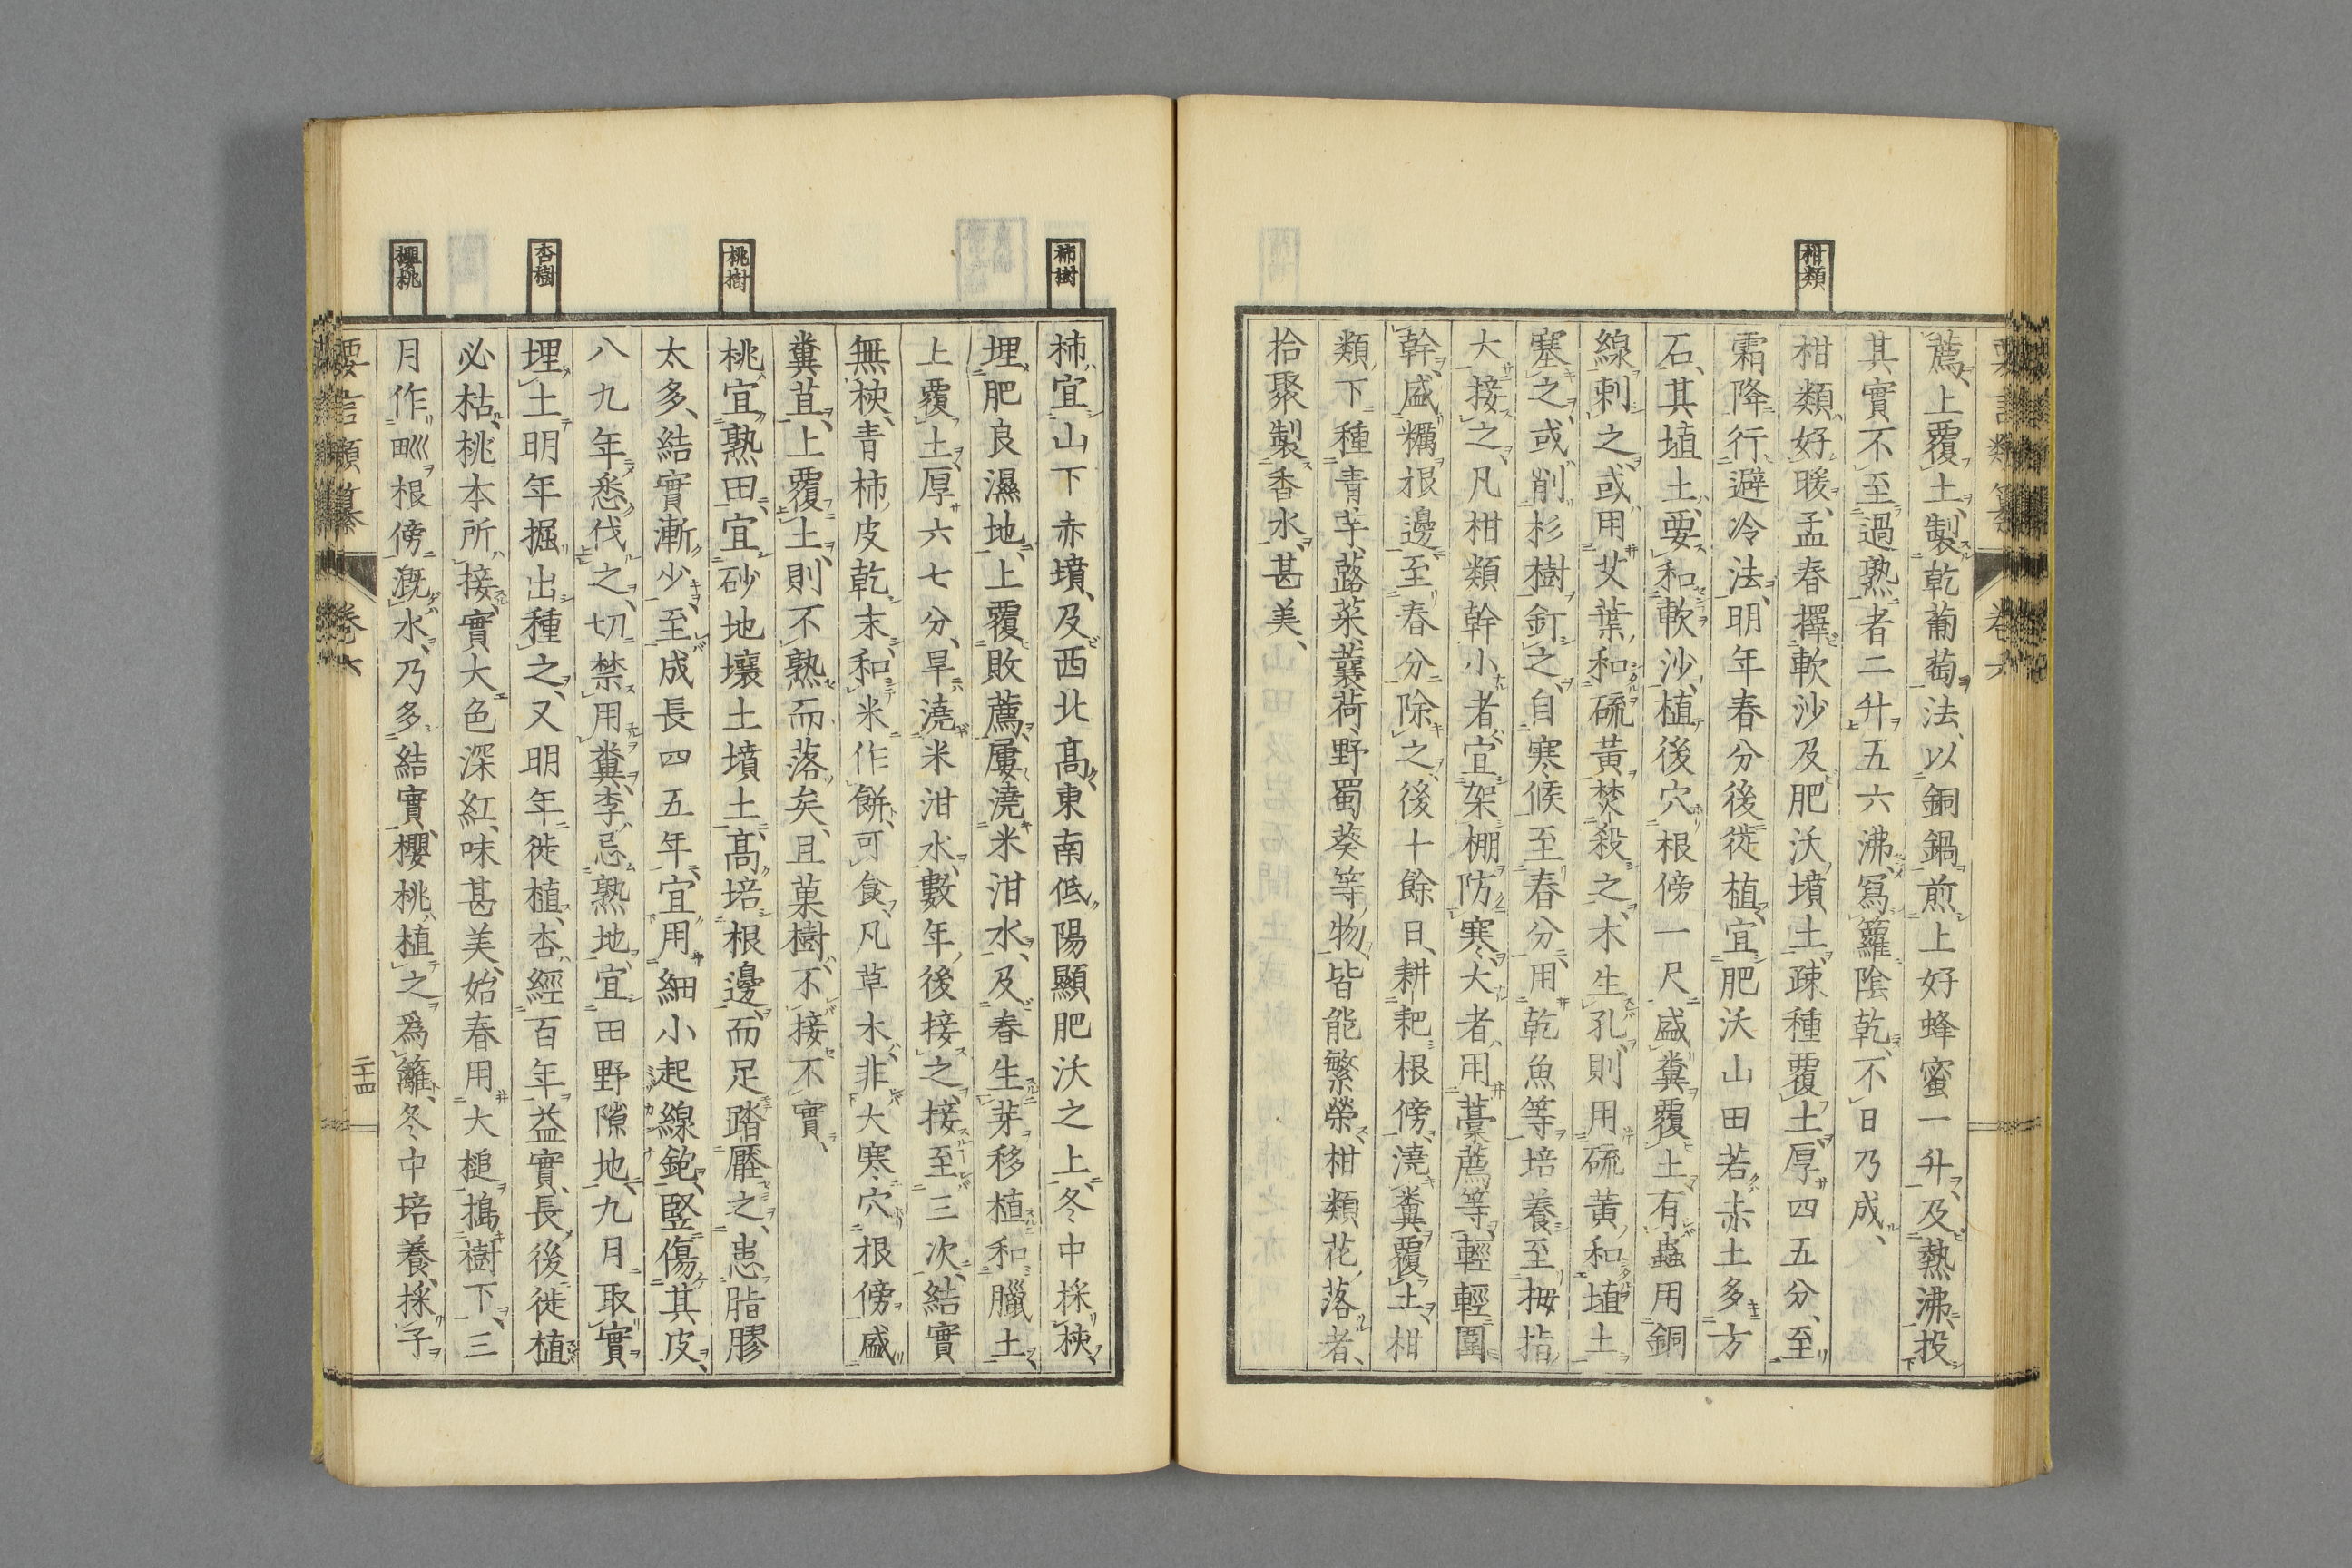 柑類
薦、上覆土、製乾葡萄法、以銅鍋煎上好蜂蜜一升、及熱沸、投
其實不至過熟者二升五六沸、寫籮陰乾、不日乃成、
柑類、好暖、孟春擇軟沙及肥沃墳土、疎種覆土、厚四五分、至
霜降行避冷法、明年春分後徙植、宜肥沃山田若赤土多方
石、其埴土、要和軟沙、植後穴根傍一尺盛糞覆土、有蟲用銅
線刺之、或用艾葉、和硫黃焚殺之、木生孔、則用硫黃和埴土
塞之、或削杉樹釘之、自寒候至春分、用乾魚等培養、至拇指
大接之、凡柑類幹小者、宜架棚防寒、大者用藁薦等、輕輕圍
幹、盛糲根邊、至春分除之、後十餘日、耕耙根傍、澆糞覆土、柑
類、下種青芋、蕗菜、蘘荷、野蜀葵等物、皆能繁榮、柑類花落者、
拾聚製香水、甚美、
柿樹
桃樹
杏樹
櫻桃
柿、宜山下赤墳、及西北高東南低陽顯肥沃之上、冬中採𣐀、
埋肥良濕地、上覆敗薦、屢澆米泔水、及春生芽移植和臘土、
上覆土厚六七分、旱澆米泔水、數年後接之、接至三次、結實
無𣐀、青柿皮乾末、和米作餅、可食、凡草木、非大寒穴根傍盛
糞苴、上覆土、則不熟而落矣、且菓樹、不接不實、
桃宜熟田、宜砂地壤土墳土、高培根邊、而足踏壓之、患脂膠
太多、結實漸少、至成長四五年、宜用細小起線鉋、竪傷其皮、
八九年悉伐之、切禁用糞、李忌熟地、宜田野隙地、九月取實、
埋土明年掘出種之、又明年徙植、杏經百年益實、長後徙植
必枯、桃本所接、實大色深紅、味甚美、始春用大槌搗樹下、三
月作甽根傍漑水、乃多結實、櫻桃植之爲籬、冬中培養、採子
要言類纂 卷六 二十四